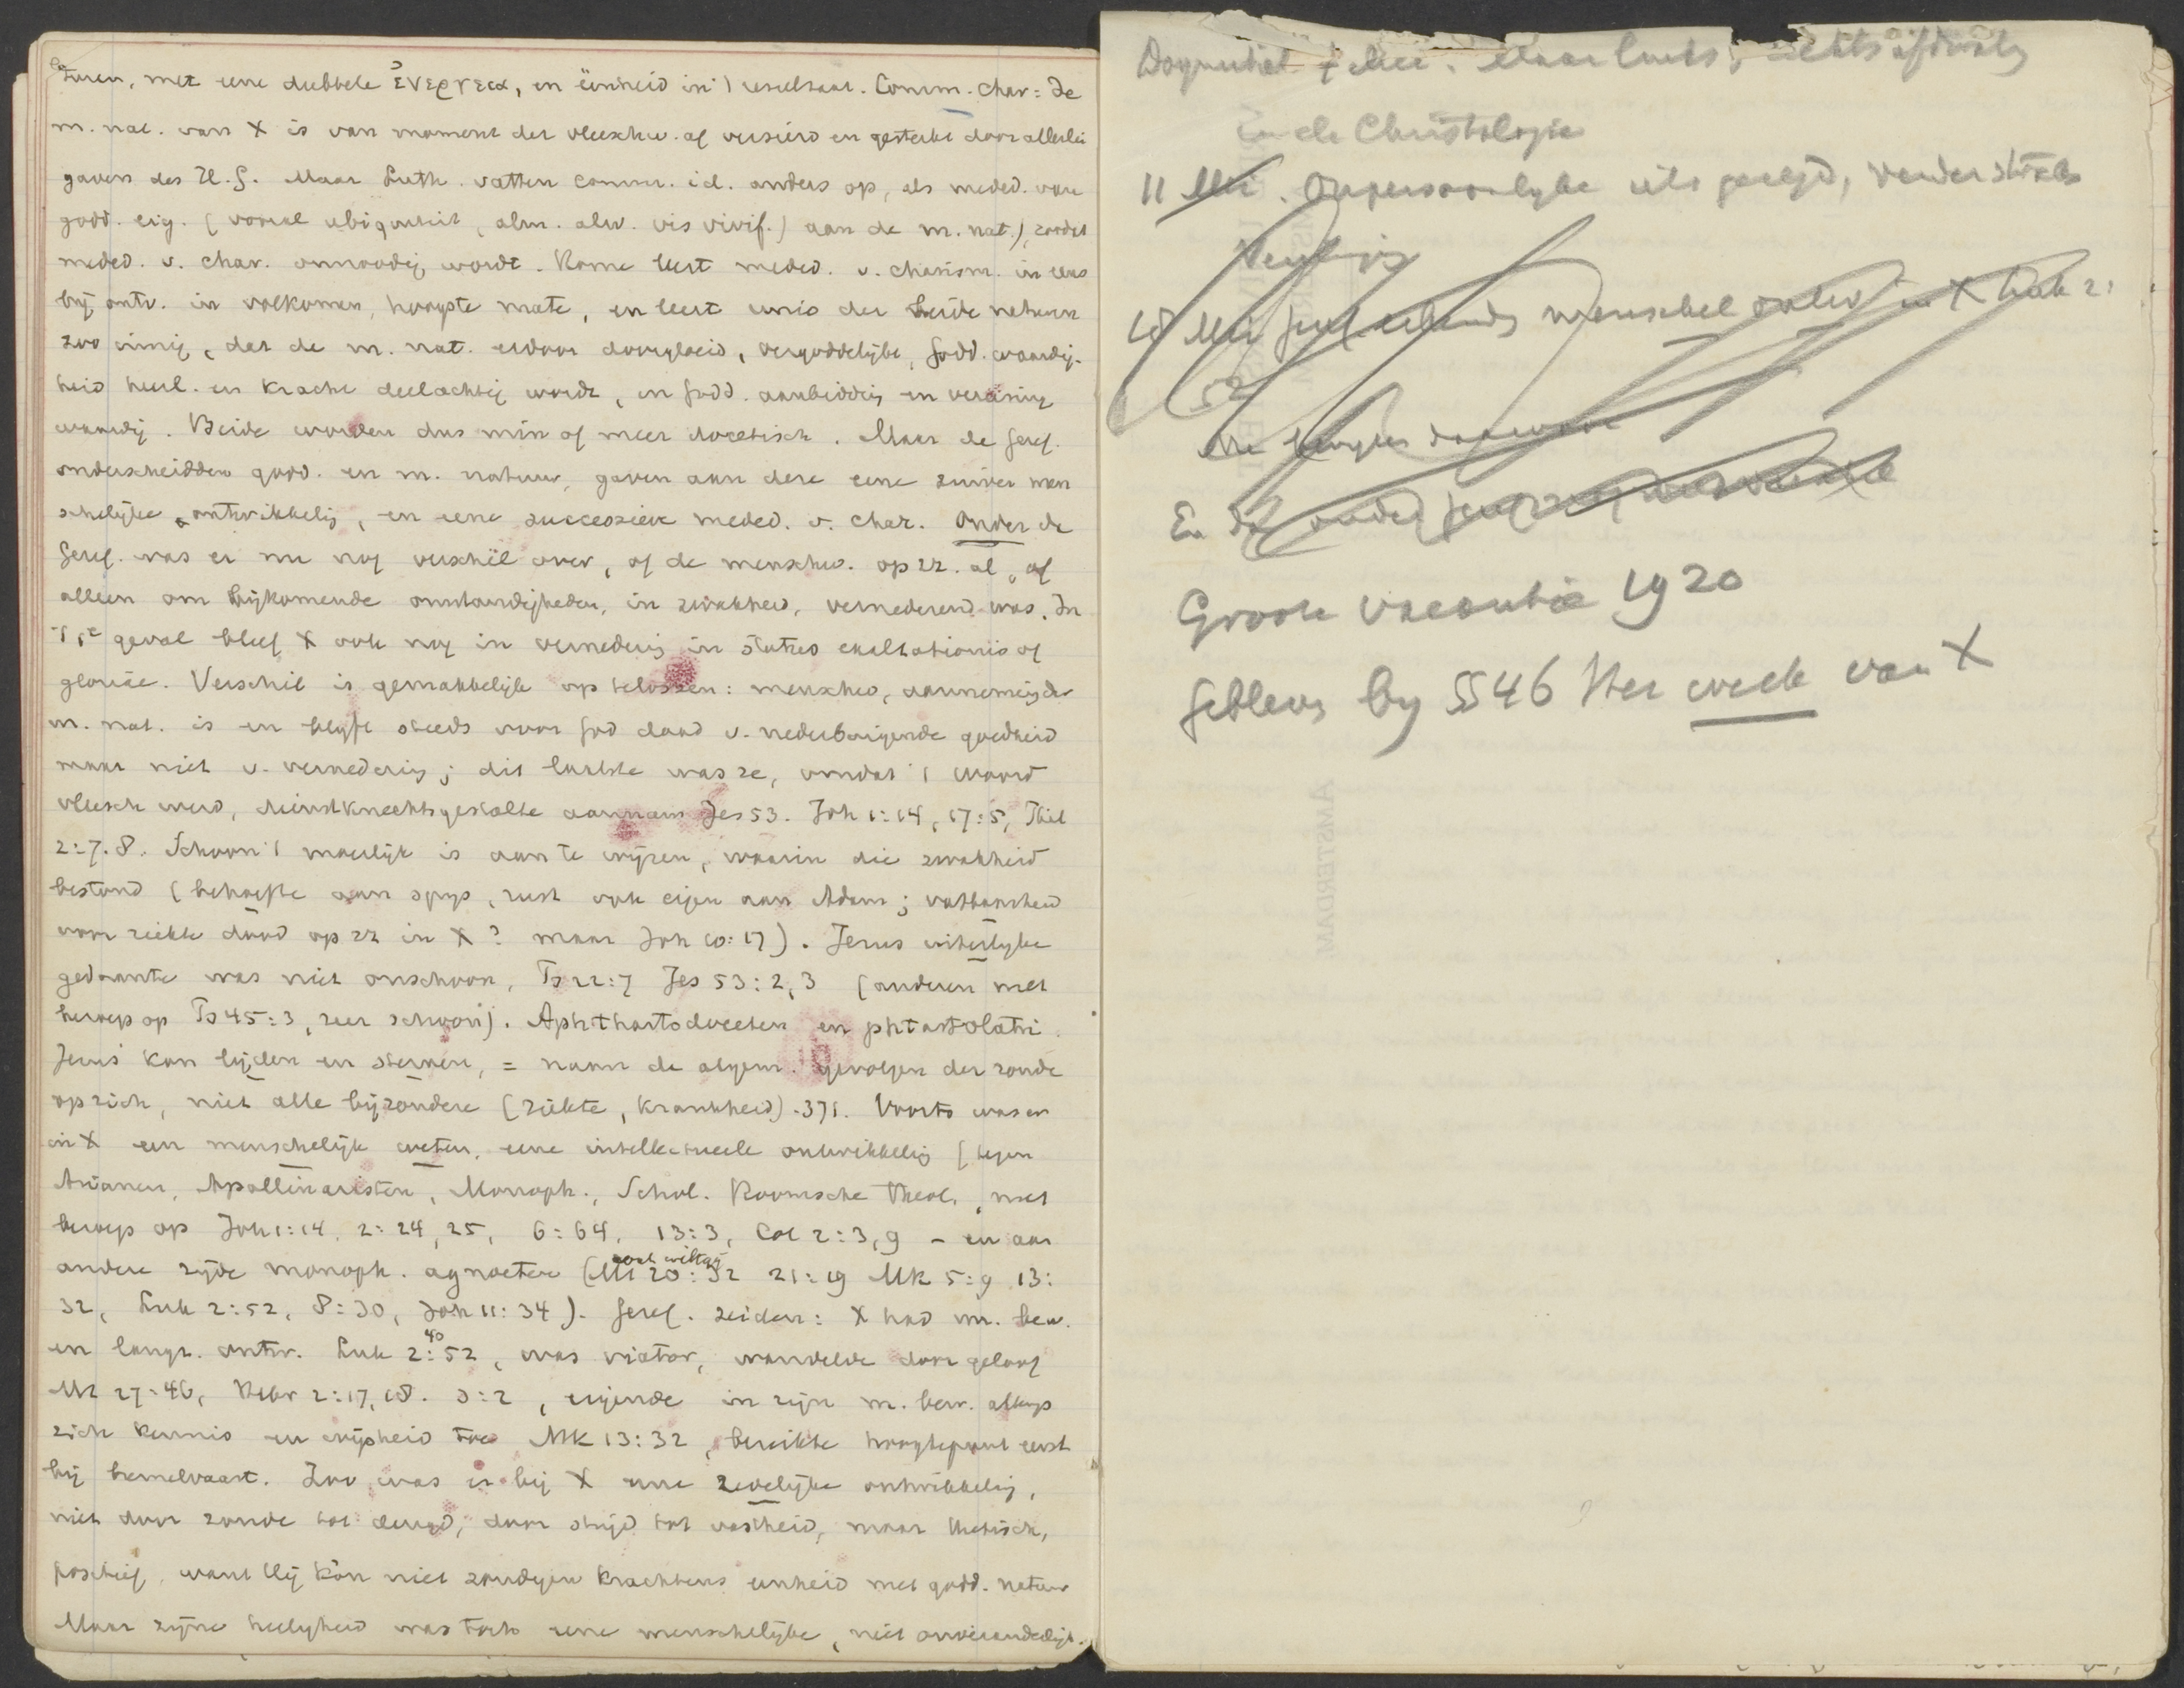 turen, met eene dubbele ἐνεργεια, en eenheid in 't resultaat. Comm. char = de
m. nat. van X is van moment der vleeschw. af versierd en gesterkt door allerlei
gaven des H.G. Maar Luth. vatten comm. id. anders op, als meded. van
godd. eig. (vooral ubiquiteit, alm. alw. vis vivif.) aan de m. nat.), zoodat
meded. v. char. onnoodig wordt. Rome leert meded. v. charism. in eens
bij ontv. in volkomen, hoogste mate, en leert unio der beide naturen
zoo innig, dat de m. nat. erdoor doorgloeid, vergoddelijkt, Godd. waardig-
heid heerl. en kracht deelachtig wordt, en Godd. aanbidding en vereering
waardig. Beide worden dus min of meer docetisch. Maar de Geref.
onderscheidden godd. en m. natuur, gaven aan deze eene zuiver men
schelijke ontwikkeling, en eene successieve meded. v. char. Onder de
Geref. was er nu nog verschil over, of de menschw. op zz. al, of
alleen om bijkomende omstandigheden, in zwakheid, vernederend was. In
't 1e geval bleef X ook nog in vernedering in status exaltationis of
gloriae. Verschil is gemakkelijk op te lossen: menschw, aanneming der
m. nat. is en blijft steeds voor God daad v. nederbuigende goedheid
maar niet v. vernedering; dit laatste was ze, omdat 't woord
vleesch werd, dienstknechtsgestalte aannam Jes 53. Joh 1:14, 17:5, Phil
2:7.8. Schoon 't moeilijk is aan te wijzen, waarin die zwakheid
bestond (behoefte aan spijs, rust ook eigen aan Adam; vatbaarheid
voor ziekte dood op zz in X? maar Joh 10:17). Jezus uiterlijke
gedaante was niet onschoon, Ps 22:7 Jes 53:2,3 (anderen met
beroep op Ps 45:3, zeer schoon). Aphthartodoceten en phtartolatri.
Jezus kon lijden en sterven, = nam de algem. gevolgen der zonde
op zich, niet alle bijzondere (ziekte, krankheid) -371. Voorts was er
in X een menschelijk weten, eene intellectueele ontwikkeling (tegen
Arianen, Apollinaristen, Monoph., Schol. Roomsche Theol., met
beroep op Joh 1:14, 2:24,25, 6:64, 13:3, Col 2:3,9 - en aan
andere zijde monoph. agnoeten (Mt 20:32 21:19 Mk 5:9 13:
32, Luk 2:52, 8:30, Joh 11:34). Geref. zeiden: X had m. bew.
40
en langz. ontw. Luk 2:52, was viator, wandelde door geloof
Mt 27:46, Hebr 2:17,18. 3:2, eigende in zijn m. bew. allengs
zich kennis en wijsheid toe Mk 13:32, bereikte hoogtepunt eerst
bij hemelvaart. Zoo was er bij X eene zedelijke ontwikkeling,
niet door zonde tot deugd, door strijd tot vastheid, maar thetisch,
positief, want Hij kòn niet zondigen krachtens eenheid met godd. natuur
Maar zijne heiligheid was toch eene menschelijke, niet onveranderlijk.
En de Christologie
11 Mei. Onpersoonlyke
18 Mei
52
En
Groote vacantie 1920
Gebleven by §46 Het werk van X
AMSTERDAM